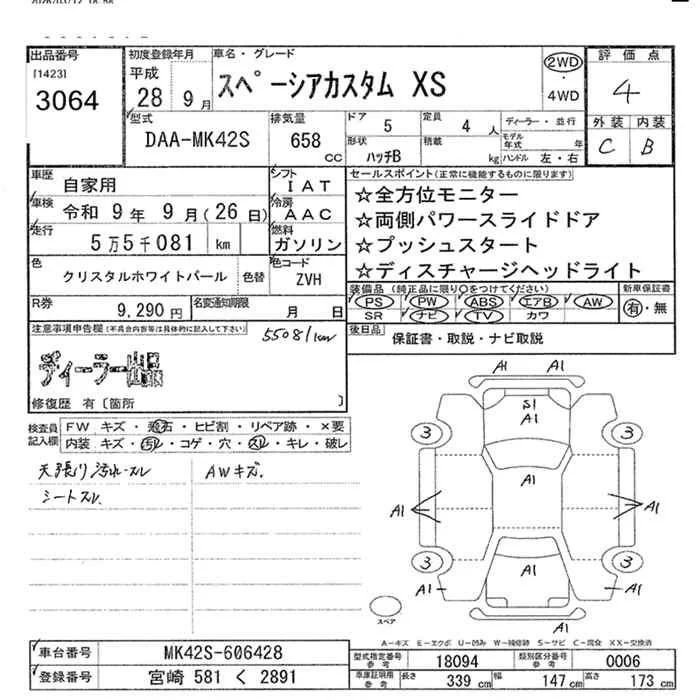 出品番号 初度登録年月 車名・グレード 評価点
[1423] 平成 2WD
3064 28 9月 スペーシアカスタム XS 4WD 4
型式 排気量 ドア 定員 ディーラー・並行 外装 内装
DAA-MK42S 658 CC 5 4人 モデル年式 年 C B
形状 積載
ハッチB kg ハンドル 左・右
車歴 自家用 シフト IAT セールスポイント(正常に機能するものに限ります)
車検 令和 9年 9月(26日) 冷房 AAC ☆全方位モニター
走行 5万5千081 km 燃料 ガソリン ☆両側パワースライドドア
☆プッシュスタート
色 クリスタルホワイトパール 色替 色コード ZVH ☆ディスチャージヘッドライト
R券 9,290円 名変通知期限 月 日 装備品(純正品に限り○をつけてください) 新車保証書
PS PW ABS エアB AW 有・無
SR ナビ TV カワ
注意事項申告欄(不具合内容等は具体的に記入して下さい) 55081km 後日品 保証書・取説・ナビ取説
ディーラー出品
修復歴 有〔箇所 〕
検査員記入欄 FW キズ・飛石・ヒビ割・リペア跡・×要
内装 キズ・汚レ・コゲ・穴・スレ・キレ・破レ
天張り汚れ・スレ AWキズ.
シートスレ
A1 A1
S1
A1
3 3
A1
A1 A1
3 3
A1 A1 A1
A1
スペア
A-キズ E-エクボ U-凹み W-補修跡 S-サビ C-腐食 XX-交換済
車台番号 MK42S-606428 型式指定番号 参考 18094 類別区分番号 参考 0006
登録番号 宮崎 581 く 2891 車庫証明用 参考 長さ 339 cm 幅 147 cm 高さ 173 cm